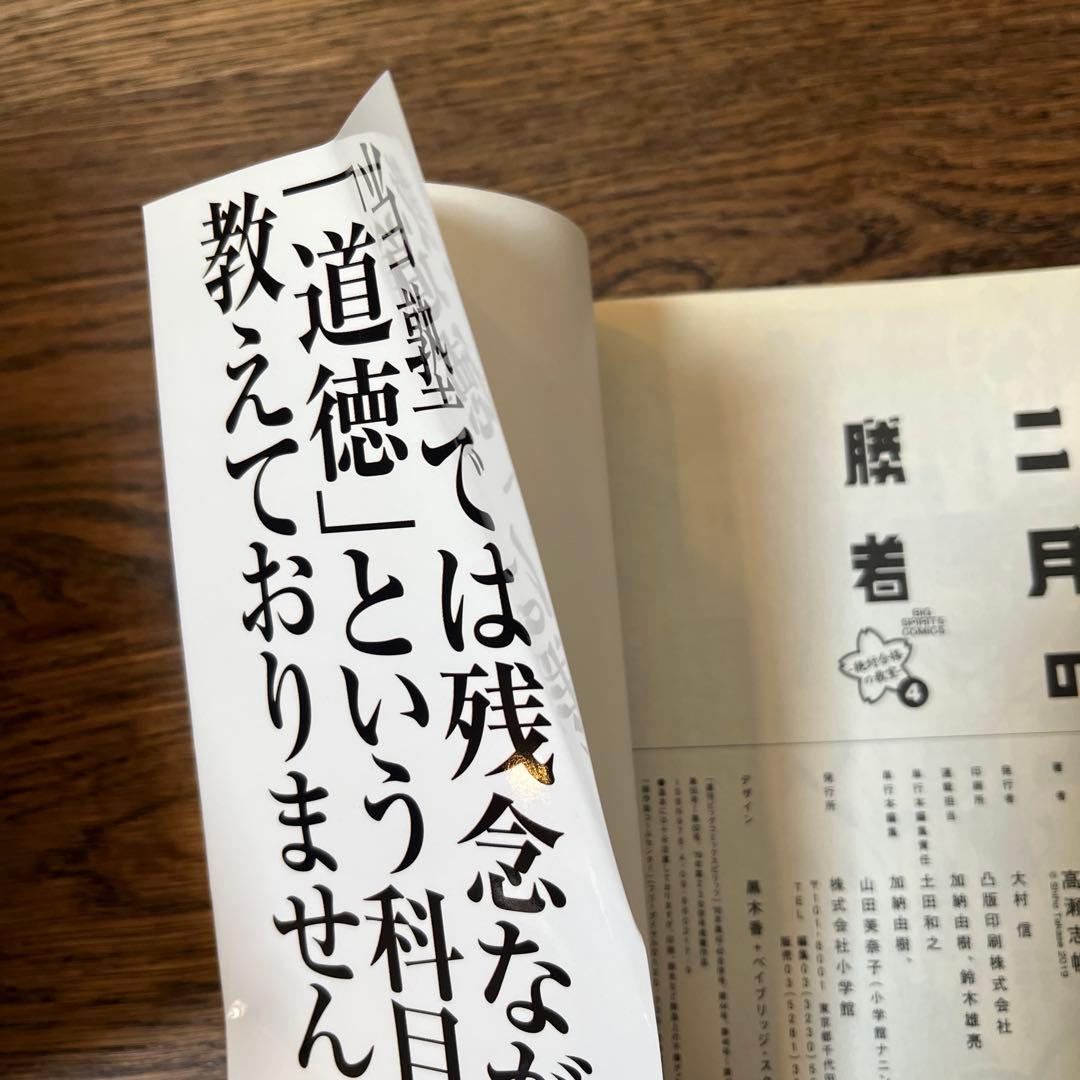 当コロ塾では残念なが
「道徳」という科目
教えておりません
二月の
勝者
BIG
SPIRITS
COMICS
絶対合格
の教室
4
著者
高瀬志帆
© Shiho Takase 2019
発行者
大村 信
印刷所
凸版印刷株式会社
連載担当
加納由樹、鈴木雄亮
単行本編集責任
土田和之
単行本編集
加納由樹、
山田美奈子(小学館ナニン
発行所
株式会社小学館
〒101-8001 東京都千代田
TEL 編集03(3230)
販売03(5281)3
デザイン
黒木香+ベイブリッジ・ス